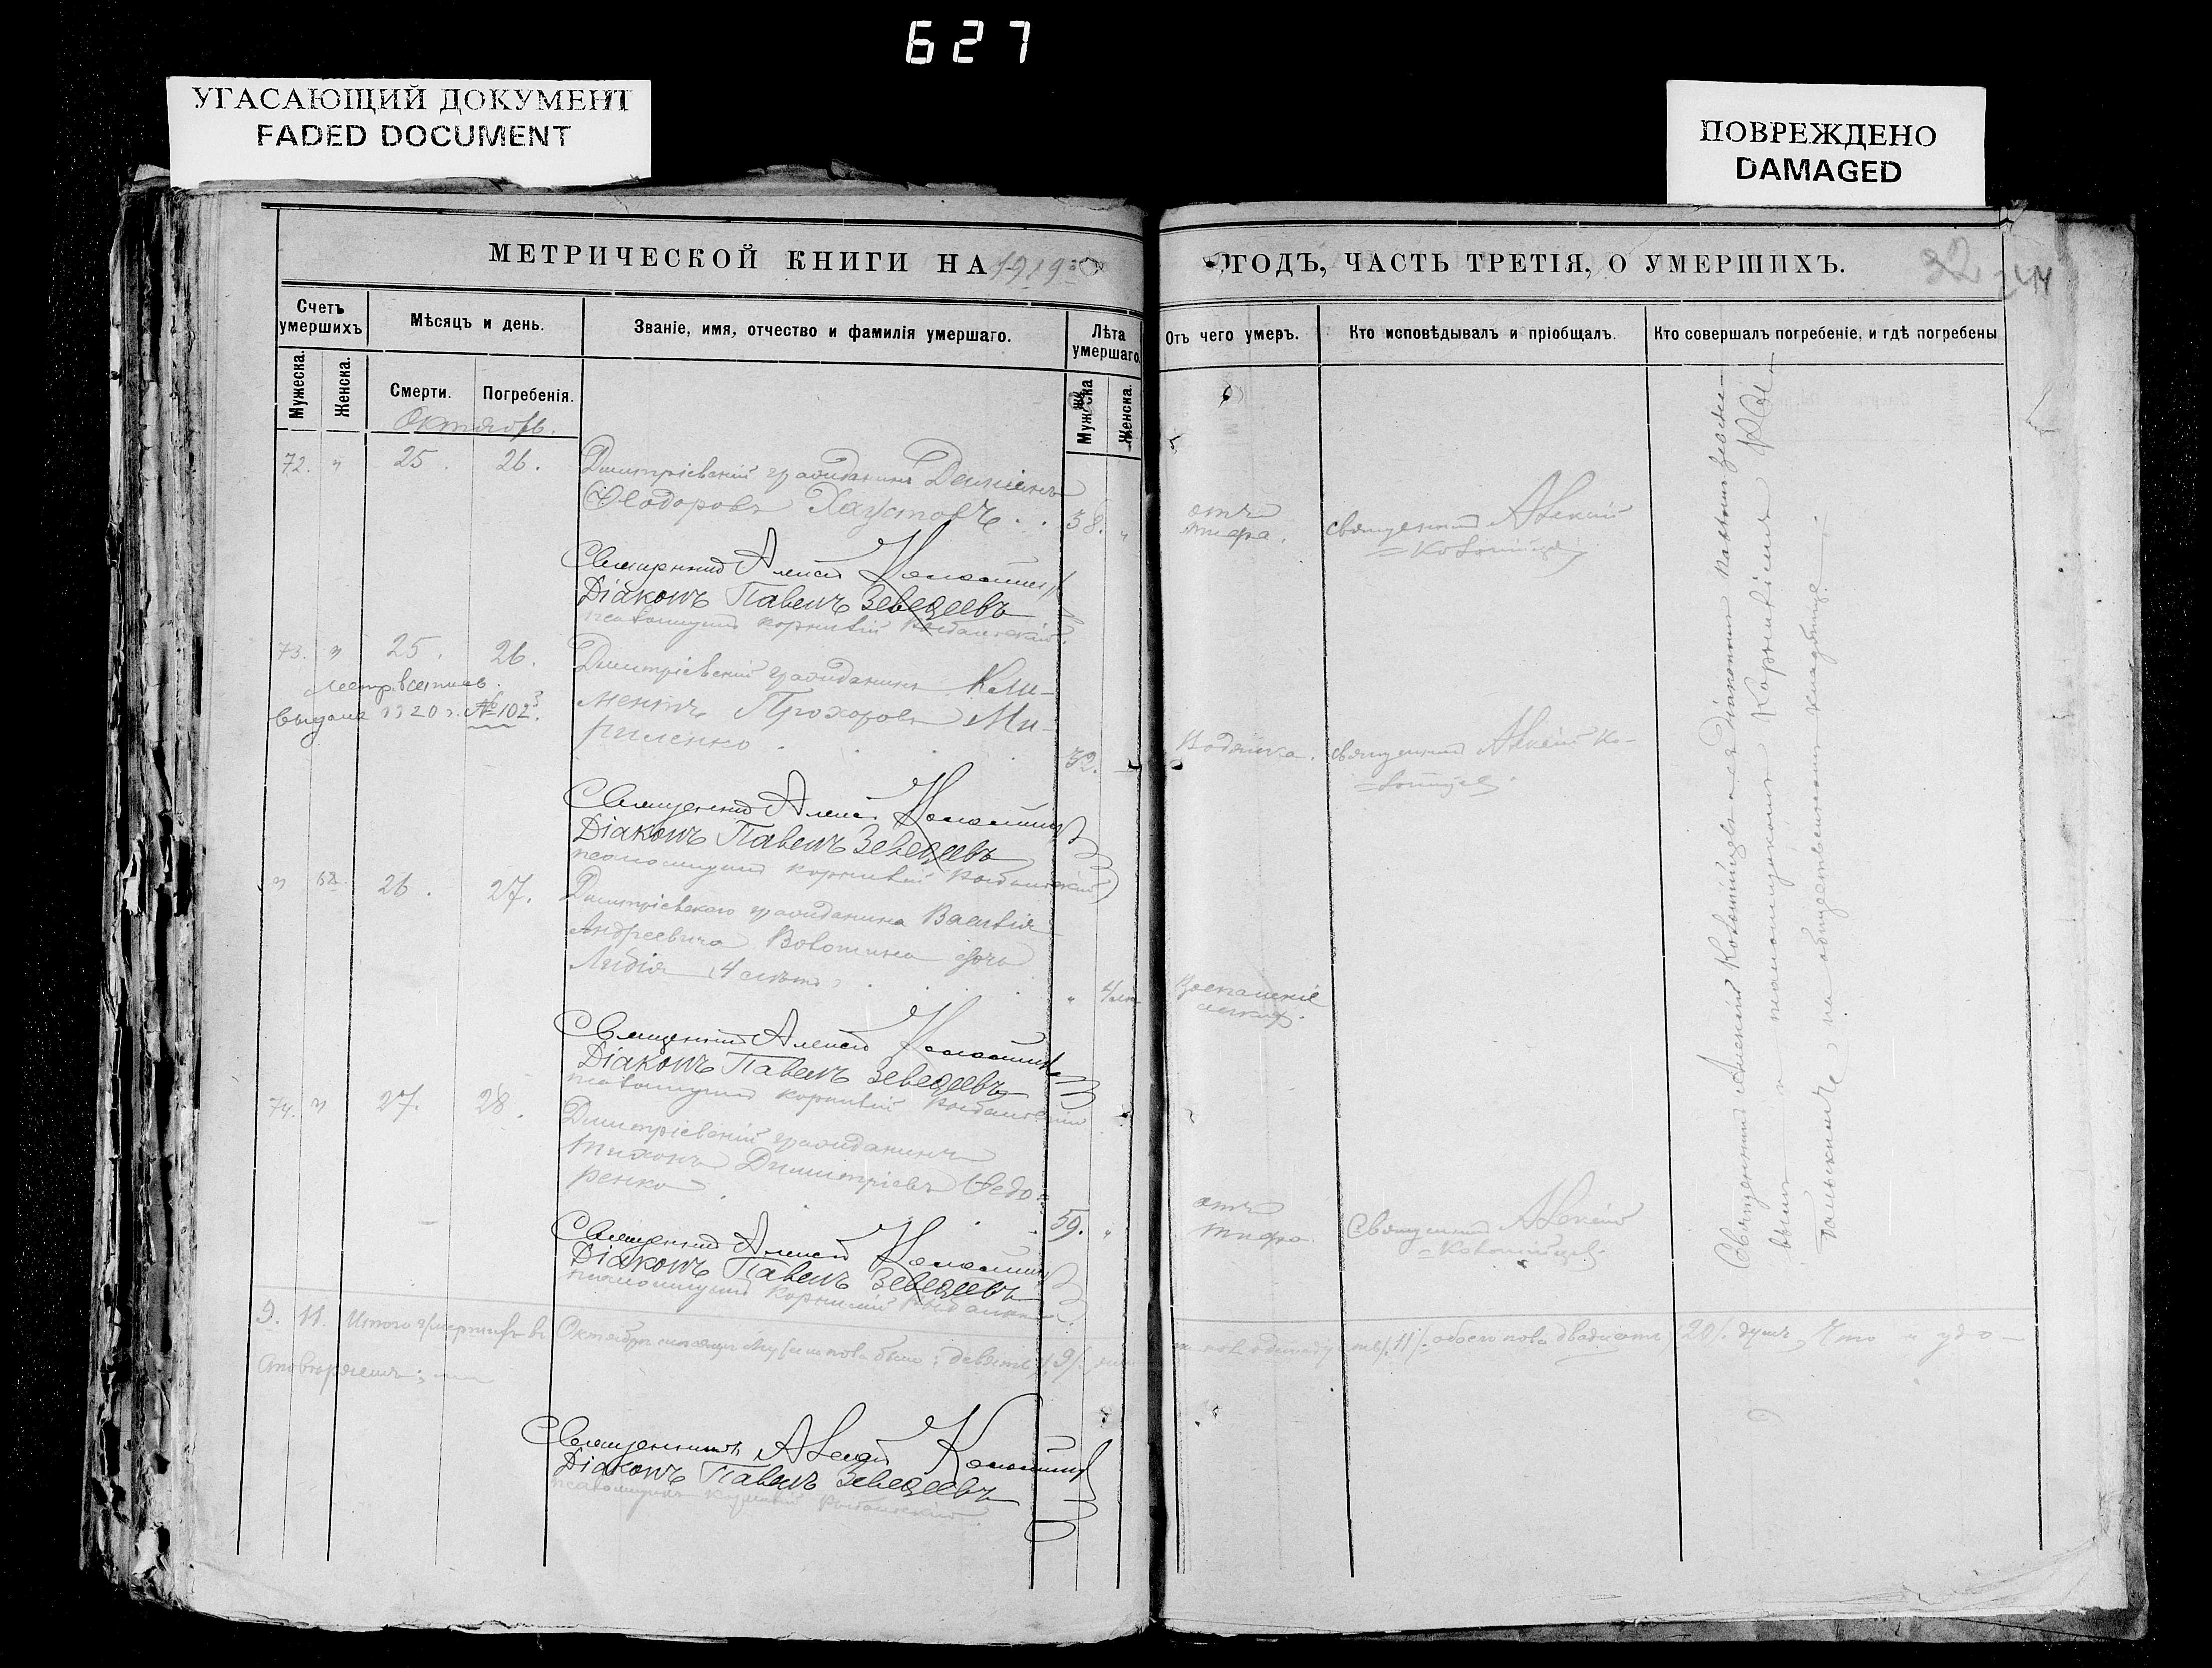 627
УГАСАЮЩИЙ ДОКУМЕНТ
FADED DOCUMENT
ПОВРЕЖДЕНО
DAMAGED
МЕТРИЧЕСКОЙ КНИГИ НА 1919
ГОДЪ, ЧАСТЬ ТРЕТІЯ, О УМЕРШИХЪ.
32
Счетъ умершихъ
Мѣсяцъ и день.
Званіе, имя, отчество и фамилія умершаго.
Лѣта умершаго.
Отъ чего умеръ.
Кто исповѣдывалъ и пріобщалъ.
Кто совершалъ погребеніе, и гдѣ погребены
Мужеска.
Женска.
Смерти.
Погребенія.
Мужеска
Женска.
Октябрь.
72. " 25. 26. Дмитріевскій гражданинъ Даміанъ
Ѳеодоровъ Хаустовъ . . 38. "
отъ
тифа.
священникъ Алексій
Коломійцевъ
Священникъ Алексій Коломійцевъ
Діаконъ Павелъ Зеведеевъ
псаломщикъ Корнилій
73. " 25. 26. Дмитріевскій гражданинъ Кли-
ментъ Прохоровъ Ми-
риленко . . . 32.
выдана 1920 г. № 102
Водянка.
священникъ Алексій Ко-
ломійцевъ
Священникъ Алексій Коломійцевъ
Діаконъ Павелъ Зеведеевъ
псаломщикъ Корнилій
" 26. 27. Дмитріевскаго гражданина Василія
Андреевича дочь
Лидія 4 лѣтъ . . . " 4
Воспаленіе
легкихъ.
Священникъ Алексій Коломійцевъ
Діаконъ Павелъ Зеведеевъ
псаломщикъ Корнилій
74. " 27. 28. Дмитріевскій гражданинъ
Тихонъ Димитріевъ Ѳедо-
ренко . . . 59. "
отъ
тифа.
Священникъ Алексій
Коломійцевъ.
Священникъ Алексій Коломійцевъ
Діаконъ Павелъ Зеведеевъ
псаломщикъ Корнилій
Священникъ Алексій Коломійцевъ съ діакономъ Павломъ Зеведее-
вымъ и псаломщикомъ Корниліемъ
на общественномъ кладбищѣ.
9. 11. Итого умершихъ въ Октябрѣ мѣсяцѣ мужеска пола было: девять /9/ женска пола одинадцать /11/ обоего пола двадцать /20/ душъ, Что и удо-
стовѣряемъ:
Священникъ Алексій Коломійцевъ
Діаконъ Павелъ Зеведеевъ
псаломщикъ Корнилій